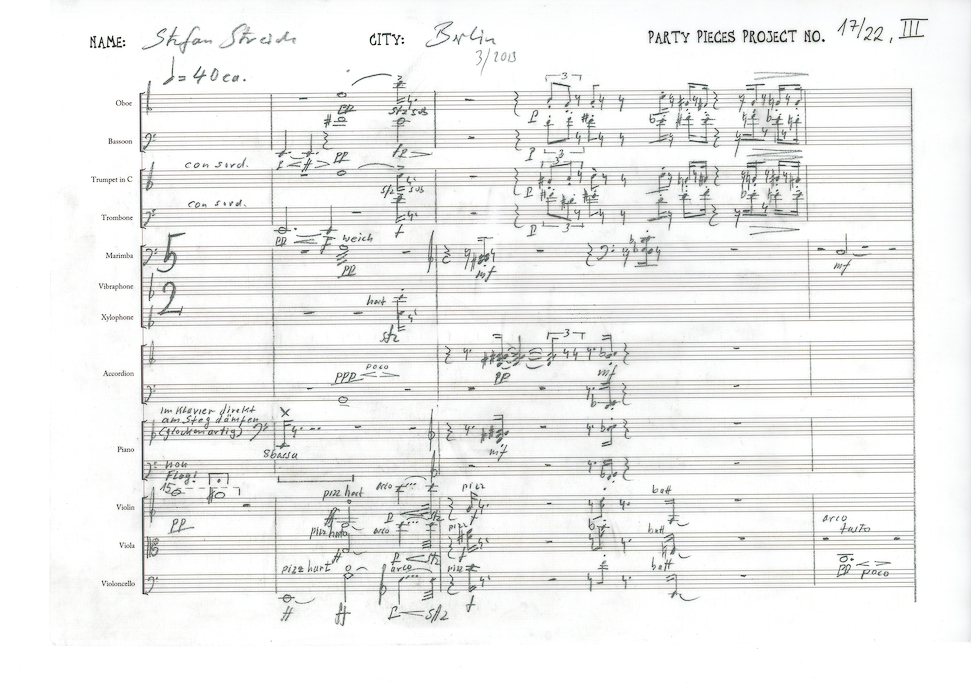 NAME: Stefan Streich CITY: Berlin PARTY PIECES PROJECT NO. 17/22, III
3/2013
= 40 ca.
Oboe
ppp sfz sub
P
Bassoon
P pp fz P
Trumpet in C con sord.
sfz sub P
Trombone con sord.
f P
pp f weich
Marimba 5 2
pp mf mf
Vibraphone
hart
Xylophone
sfz
Accordion
poco
PPP pp mf
Im Klavier direkt
am Steg dämpfen
(glockenartig)
8bassa mf
Piano
non
Flag!
15
pizz hart arco pizz batt
Violin
PP P sfz arco
pizz hart arco pizz batt tasto
Viola
ff P sfz
pizz hart arco pizz batt
Violoncello
PP poco
ff ff P sffz f